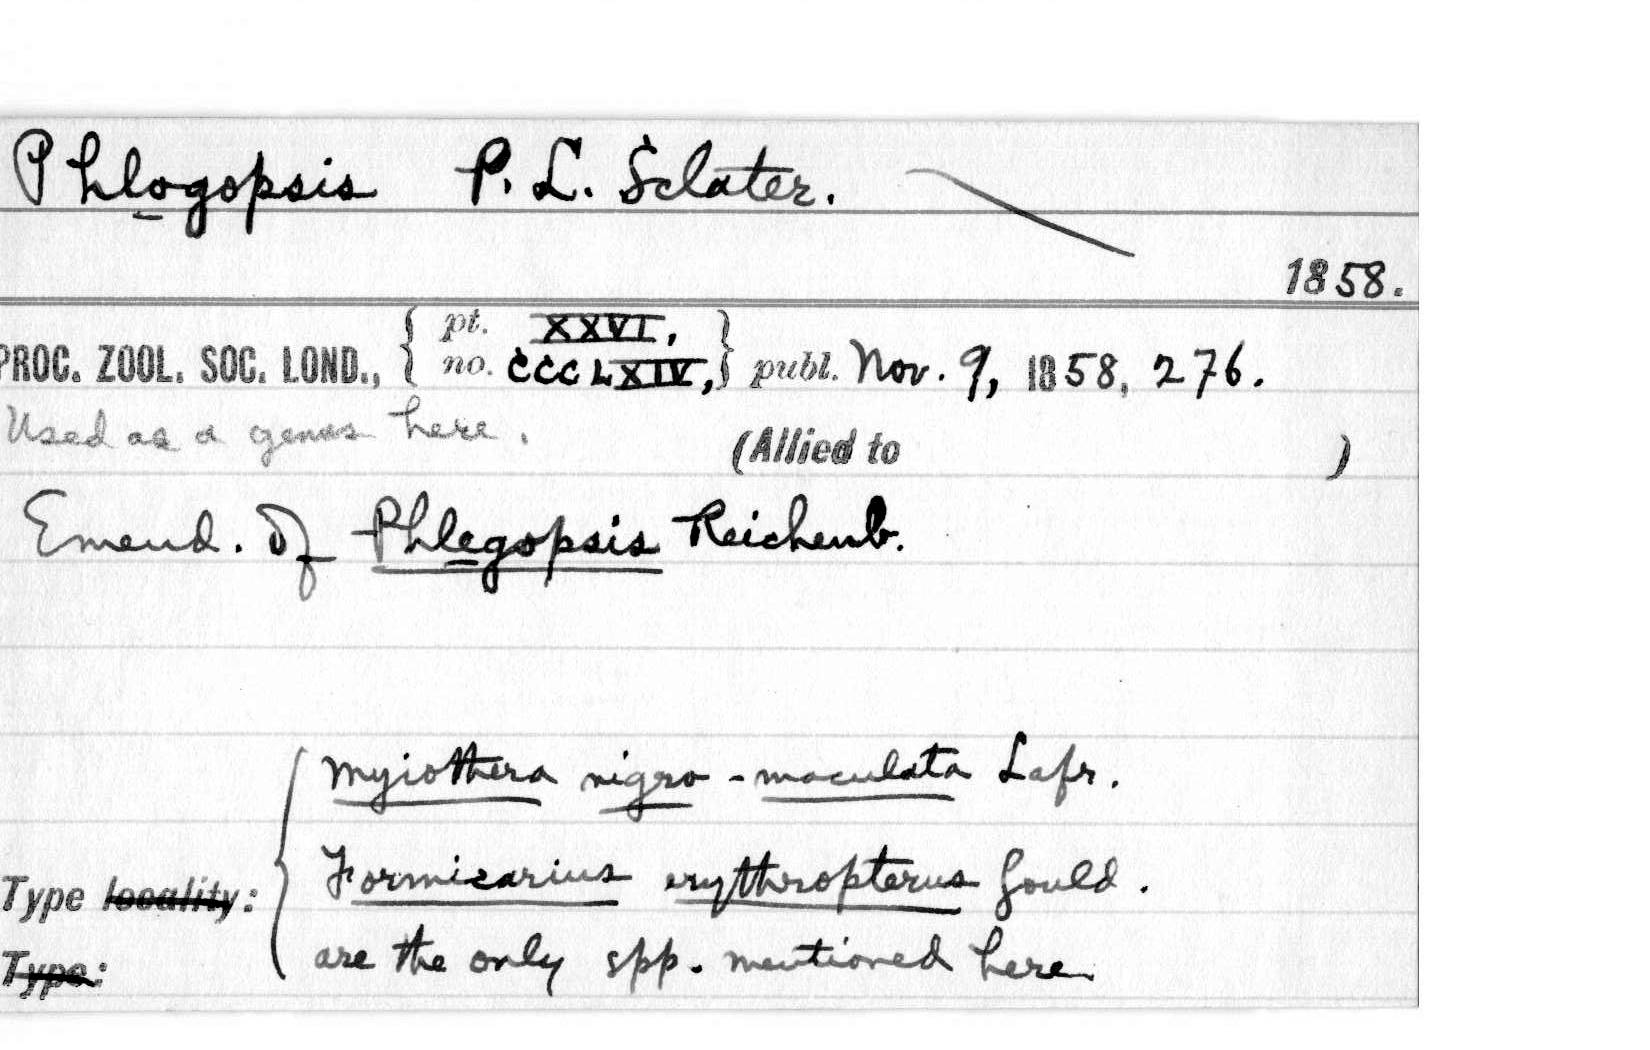 Phlogopsis P. L. Sclater.
1858.
PROC. ZOOL. SOC. LOND., { pt. XXVI, no. CCCLXIV, } publ. Nov. 9, 1858, 276.
Used as a genus here.
(Allied to )
Emend. of Phlegopsis Reichenb.
Myiothera nigro-maculata Lafr.
Formicarius erythropterus Gould.
Type locality:
are the only spp. mentioned here
Type: